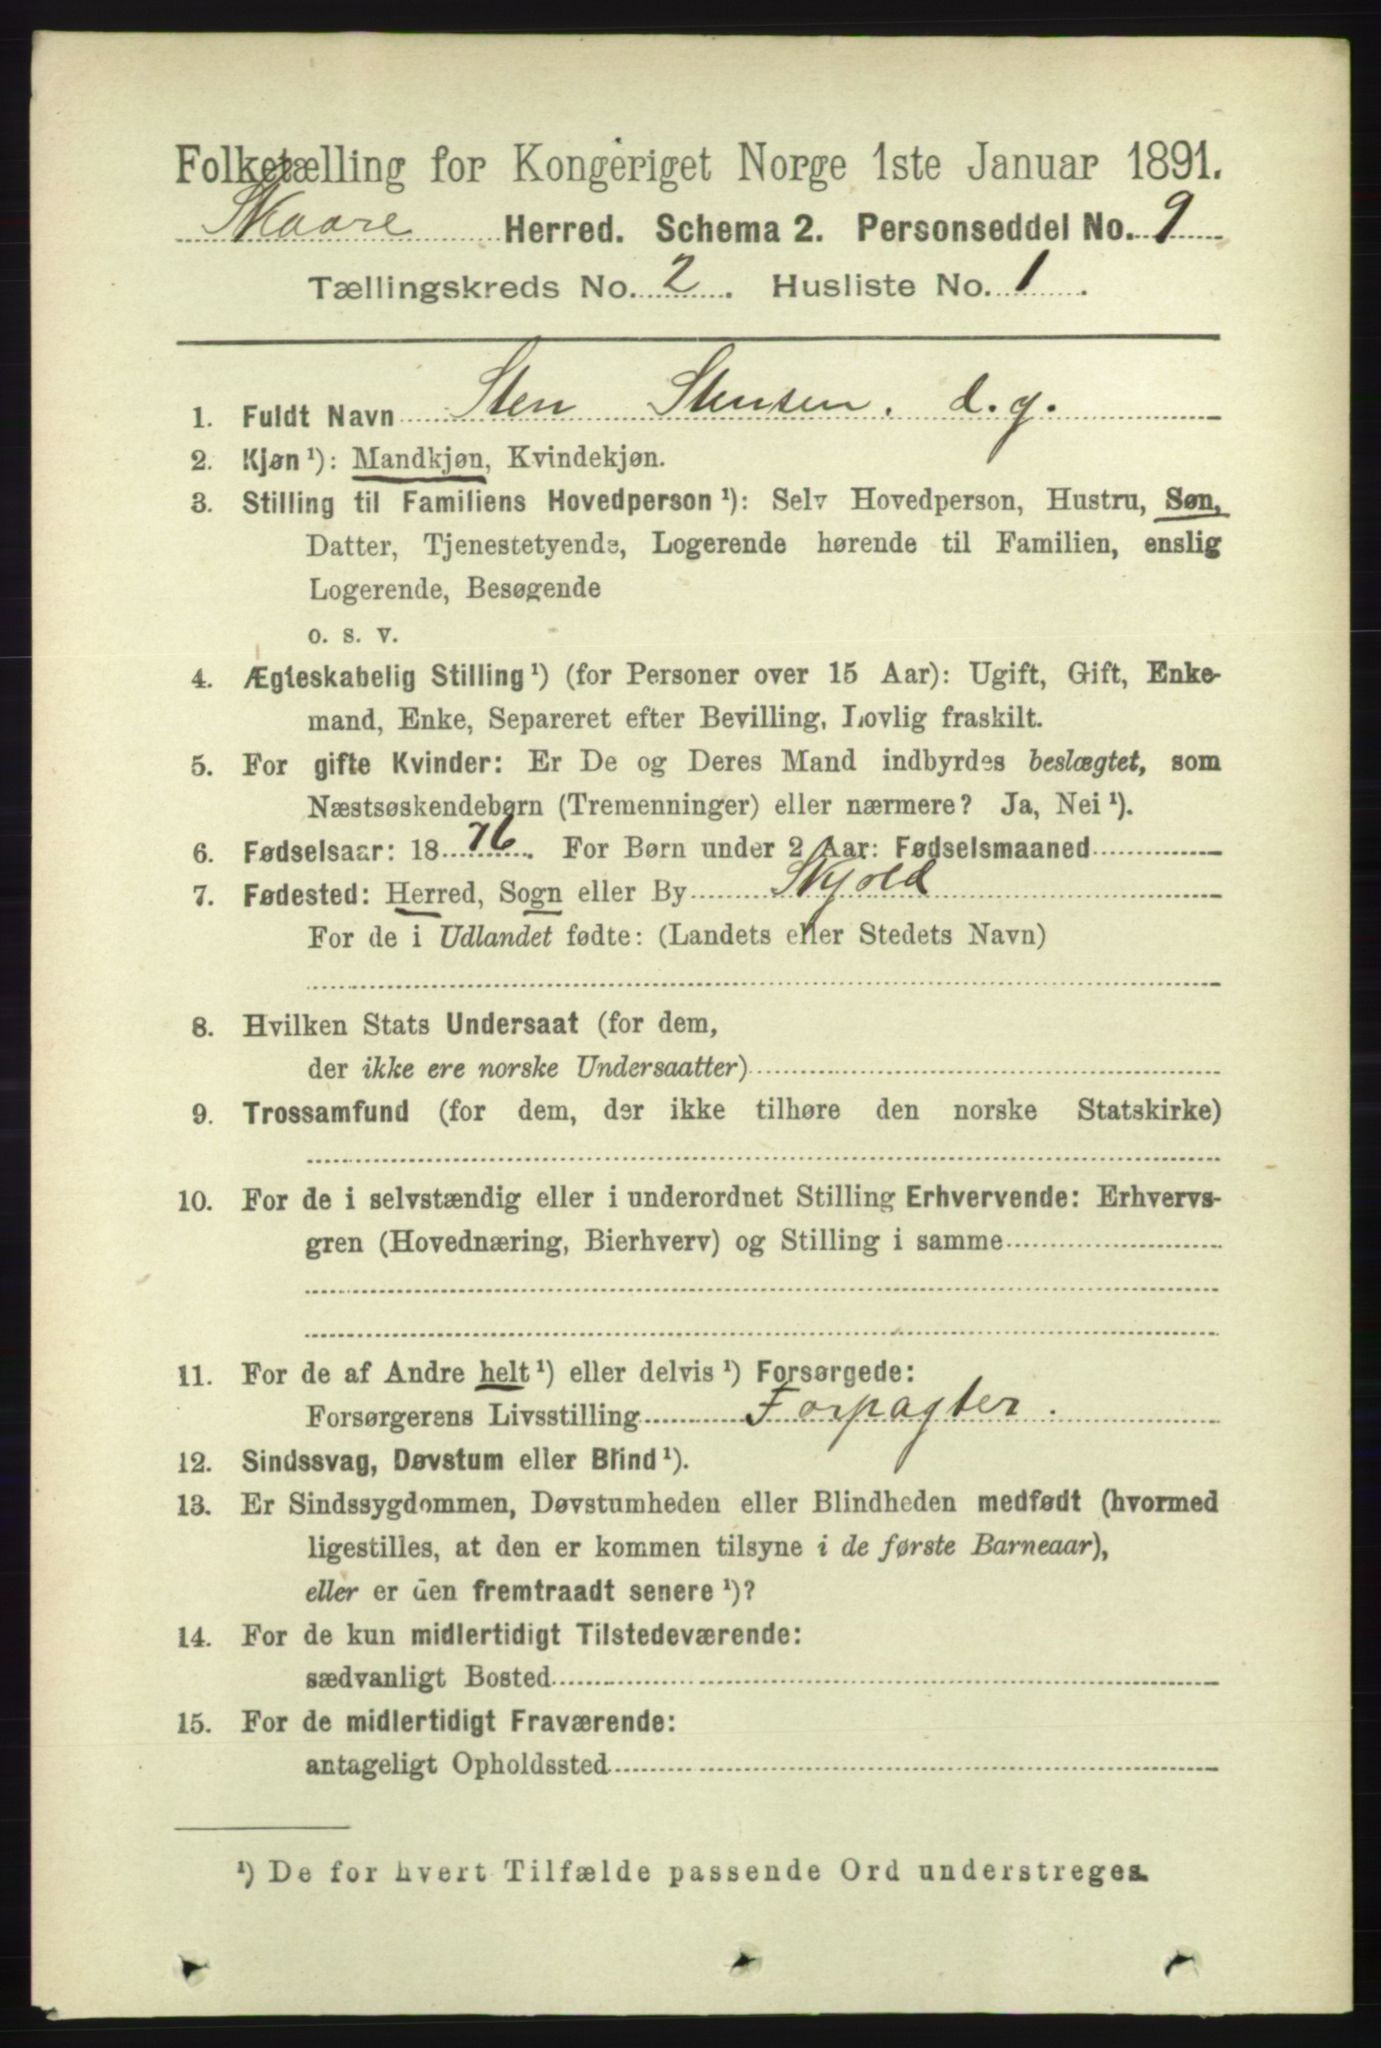 Folketælling for Kongeriget Norge 1ste Januar 1891.
Skaare Herred. Schema 2. Personseddel No. 9
Tællingskreds No. 2. Husliste No. 1.
1. Fuldt Navn Sten Stensen. d. y.
2. Kjøn ¹): Mandkjøn, Kvindekjøn.
3. Stilling til Familiens Hovedperson ¹): Selv Hovedperson, Hustru, Søn,
Datter, Tjenestetyende, Logerende hørende til Familien, enslig
Logerende, Besøgende
o. s. v.
4. Ægteskabelig Stilling ¹) (for Personer over 15 Aar): Ugift, Gift, Enke-
mand, Enke, Separeret efter Bevilling, Lovlig fraskilt.
5. For gifte Kvinder: Er De og Deres Mand indbyrdes beslægtet, som
Næstsøskendebørn (Tremenninger) eller nærmere? Ja, Nei ¹).
6. Fødselsaar: 18 76. For Børn under 2 Aar: Fødselsmaaned
7. Fødested: Herred, Sogn eller By Skjold
For de i Udlandet fødte: (Landets eller Stedets Navn)
8. Hvilken Stats Undersaat (for dem,
der ikke ere norske Undersaatter)
9. Trossamfund (for dem, der ikke tilhøre den norske Statskirke)
10. For de i selvstændig eller i underordnet Stilling Erhvervende: Erhvervs-
gren (Hovednæring, Bierhverv) og Stilling i samme
11. For de af Andre helt ¹) eller delvis ¹) Forsørgede:
Forsørgerens Livsstilling Forpagter.
12. Sindssvag, Døvstum eller Blind ¹).
13. Er Sindssygdommen, Døvstumheden eller Blindheden medfødt (hvormed
ligestilles, at den er kommen tilsyne i de første Barneaar),
eller er den fremtraadt senere ¹)?
14. For de kun midlertidigt Tilstedeværende:
sædvanligt Bosted
15. For de midlertidigt Fraværende:
antageligt Opholdssted
¹) De for hvert Tilfælde passende Ord understreges.